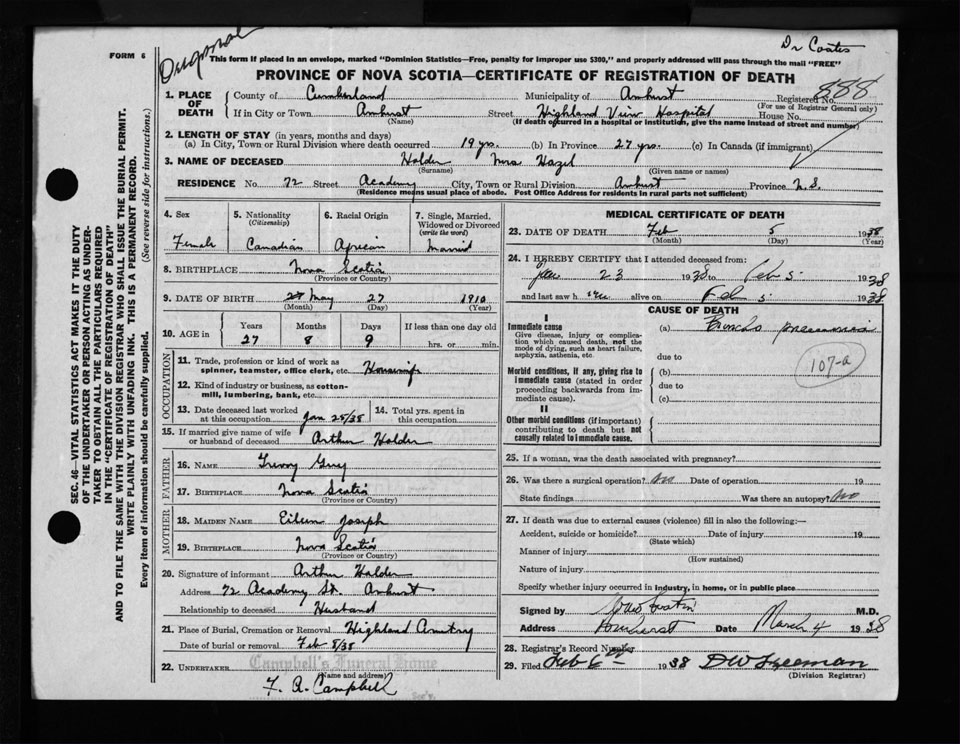 Dr Coates
Original
FORM 6
This form if placed in an envelope, marked "Dominion Statistics—Free, penalty for improper use $300," and properly addressed will pass through the mail "FREE"
PROVINCE OF NOVA SCOTIA—CERTIFICATE OF REGISTRATION OF DEATH
888
1. PLACE OF DEATH
County of Cumberland Municipality of Amherst Registered No.
(For use of Registrar General only)
If in City or Town Amherst Street Highland View Hospital House No.
(Name) (If death occurred in a hospital or institution, give the name instead of street and number)
2. LENGTH OF STAY (in years, months and days)
(a) In City, Town or Rural Division where death occurred 19 yrs. (b) In Province 27 yrs. (c) In Canada (if immigrant)
3. NAME OF DECEASED Holder Hazel
(Surname) (Given name or names)
RESIDENCE No. 72 Street Academy City, Town or Rural Division Amherst Province N.S.
(Residence means usual place of abode. Post Office Address for residents in rural parts not sufficient)
4. Sex
Female
5. Nationality
(Citizenship)
Canadian
6. Racial Origin
African
7. Single, Married, Widowed or Divorced
(write the word)
Married
8. BIRTHPLACE Nova Scotia
(Province or Country)
9. DATE OF BIRTH 27 May 27 1910
(Month) (Day) (Year)
10. AGE in
Years Months Days If less than one day old
27 8 9 hrs. or min.
OCCUPATION
11. Trade, profession or kind of work as spinner, teamster, office clerk, etc. Housewife
12. Kind of industry or business, as cotton-mill, lumbering, bank, etc.
13. Date deceased last worked at this occupation Jan 25/38
14. Total yrs. spent in this occupation
15. If married give name of wife or husband of deceased Arthur Holder
FATHER
16. NAME Guy
17. BIRTHPLACE Nova Scotia
(Province or Country)
MOTHER
18. MAIDEN NAME Eileen Joseph
19. BIRTHPLACE Nova Scotia
(Province or Country)
20. Signature of informant Arthur Holder
Address 72 Academy St. Amherst
Relationship to deceased Husband
21. Place of Burial, Cremation or Removal Highland Cemetery
Date of burial or removal Feb 8/38
22. UNDERTAKER Campbell's Funeral Home
(Name and address)
F. R. Campbell
MEDICAL CERTIFICATE OF DEATH
23. DATE OF DEATH Feb 5 1938
(Month) (Day) (Year)
24. I HEREBY CERTIFY that I attended deceased from:
Jan 23 1938 to Feb 5 1938
and last saw h er alive on Feb 5 1938
CAUSE OF DEATH
I
Immediate cause
Give disease, injury or complication which caused death, not the mode of dying, such as heart failure, asphyxia, asthenia, etc.
(a) Broncho pneumonia
due to
107-a
Morbid conditions, if any, giving rise to immediate cause (stated in order proceeding backwards from immediate cause).
(b)
due to
(c)
II
Other morbid conditions (if important) contributing to death but not causally related to immediate cause.
25. If a woman, was the death associated with pregnancy?
26. Was there a surgical operation? No Date of operation 19
State findings Was there an autopsy? No
27. If death was due to external causes (violence) fill in also the following:—
Accident, suicide or homicide? Date of injury 19
(State which)
Manner of injury
(How sustained)
Nature of injury
Specify whether injury occurred in industry, in home, or in public place
Signed by M.D.
Address Amherst Date March 4 1938
28. Registrar's Record Number
29. Filed Feb 6th 1938 D W Freeman
(Division Registrar)
SEC. 46—VITAL STATISTICS ACT MAKES IT THE DUTY
OF THE UNDERTAKER OR PERSON ACTING AS UNDER-
TAKER TO OBTAIN ALL THE PARTICULARS REQUIRED
IN THE "CERTIFICATE OF REGISTRATION OF DEATH"
AND TO FILE THE SAME WITH THE DIVISION REGISTRAR WHO SHALL ISSUE THE BURIAL PERMIT.
WRITE PLAINLY WITH UNFADING INK. THIS IS A PERMANENT RECORD.
Every item of information should be carefully supplied. (See reverse side for instructions.)